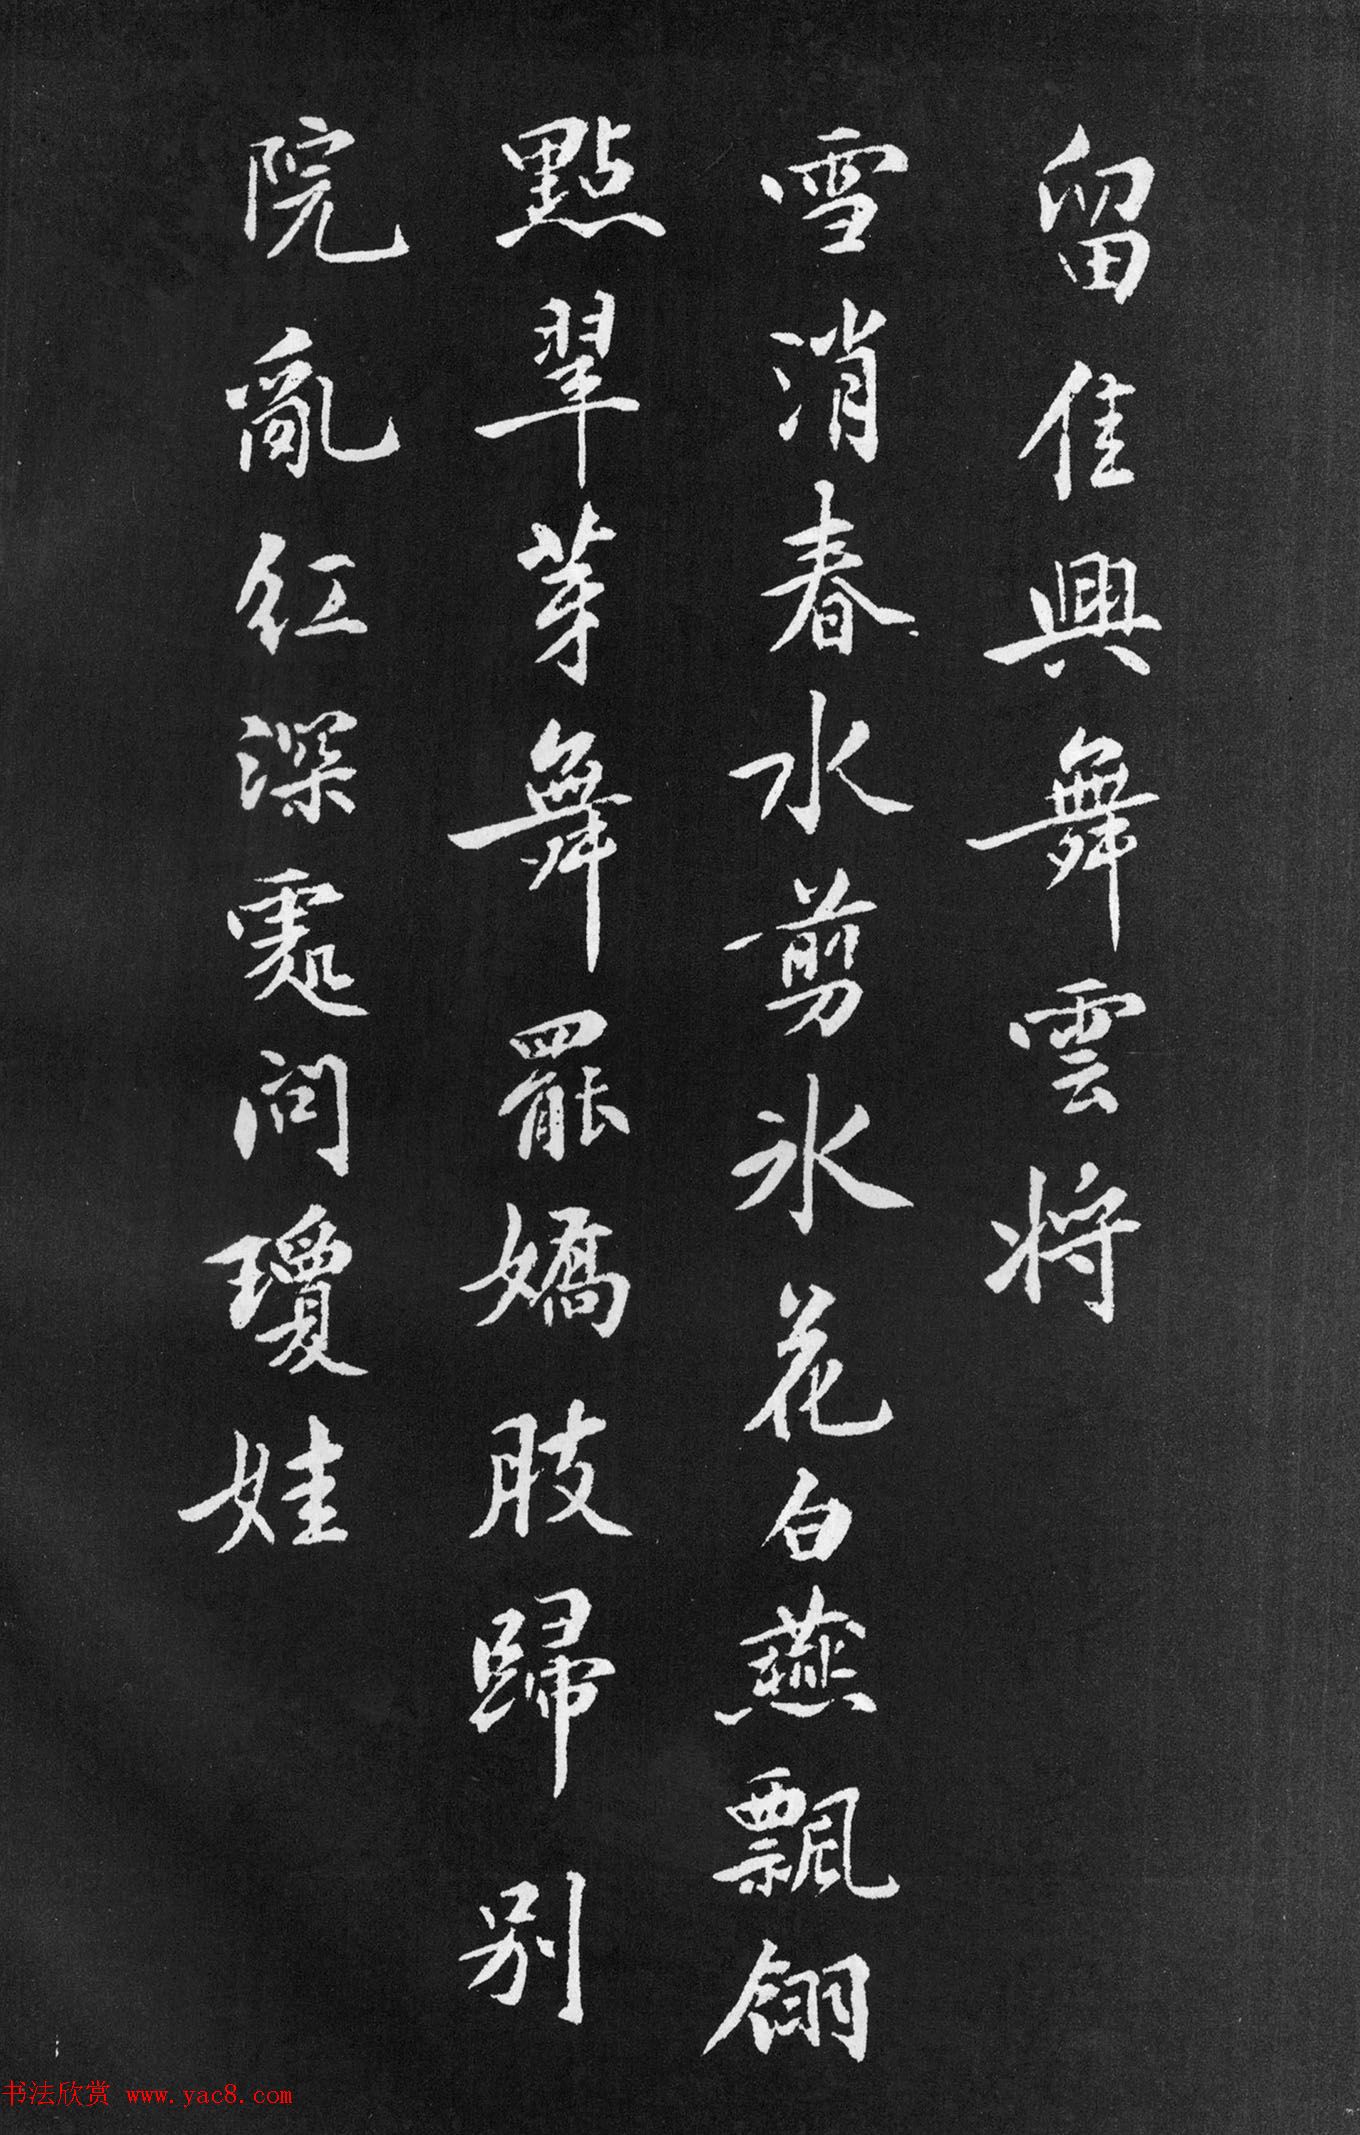 留佳興舞雲將
雪消春水剪氷花白燕飄翎
點翠芽舞罷嬌肢歸別
院亂紅深處問瓊娃
书法欣赏 www.yac8.com